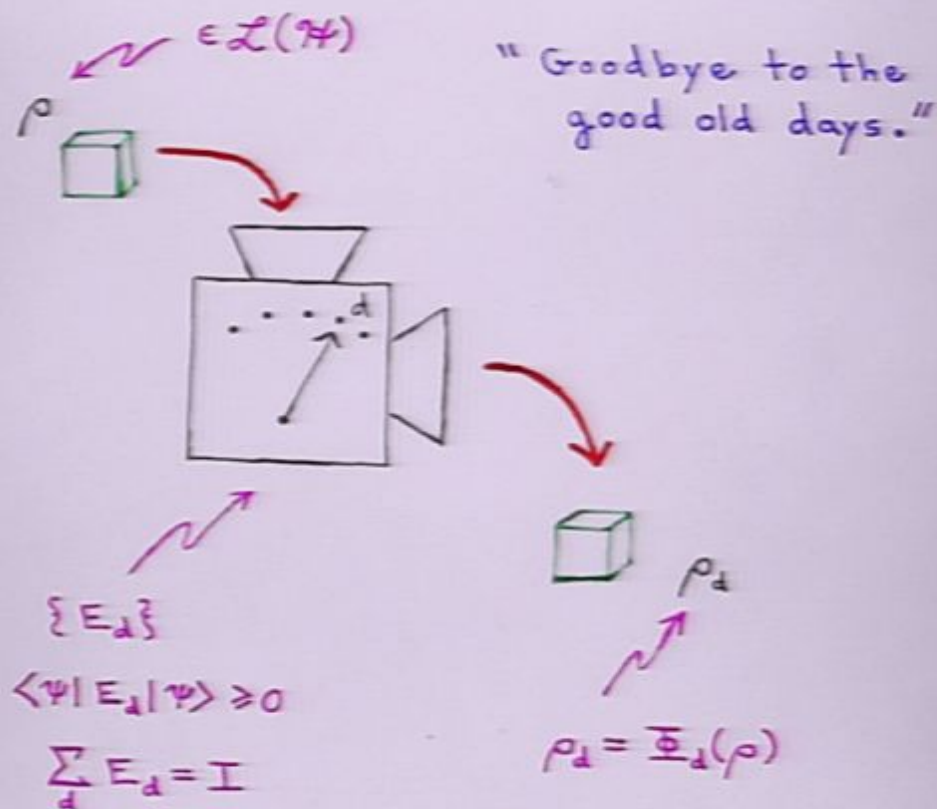 ∈ℒ(ℋ)
"Goodbye to the
good old days."
ρ
d
{E_d}
⟨ψ|E_d|ψ⟩ ≥ 0
∑_d E_d = I
ρ_d
ρ_d = Φ_d(ρ)